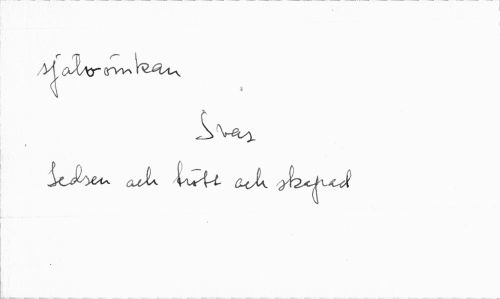 självömkan
Svas
Ledsen och trött och skapad